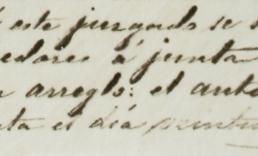 este juzgado se
edores á junta
arreglo: el auto
ta el día